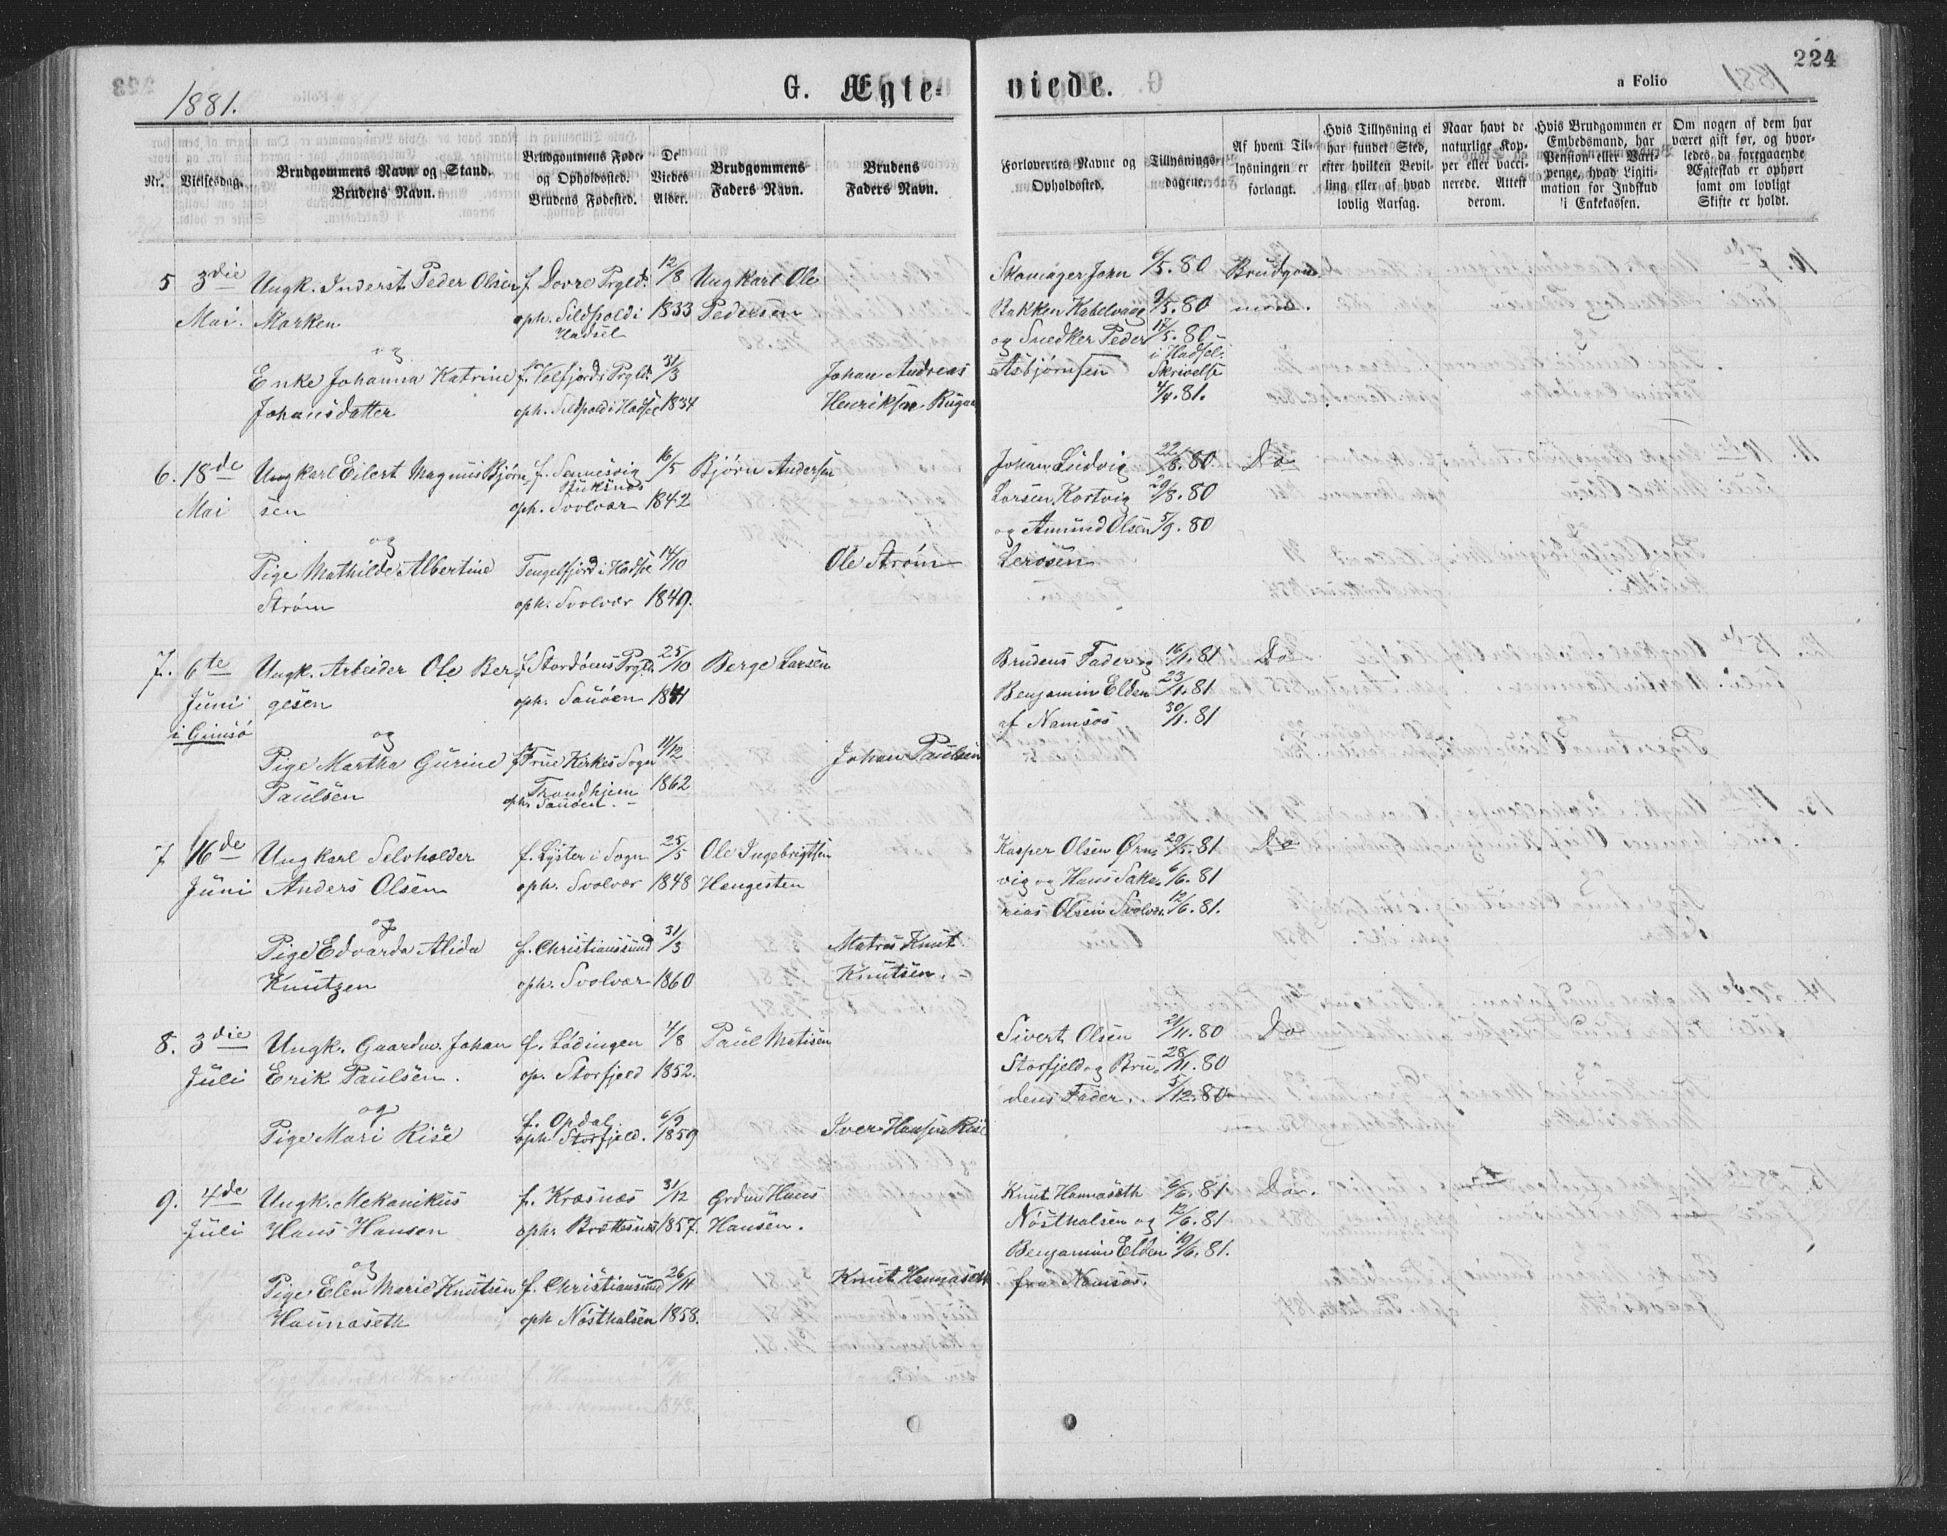 1881.
G. Ægte-
viede.
a Folio
224
Nr.
Vielsesdag.
Brudgommens Navn og Stand.
Brudens Navn.
Brudgommens Føde-
og Opholdssted.
Brudens Fødested.
De
Viedes
Alder.
Brudgommens
Faders Navn.
Brudens
Faders Navn.
Forlovernes Navne og
Opholdssted.
Tillysnings-
dagene.
Af hvem Til-
lysningen er
forlangt.
Hvis Tillysning ei
har fundet Sted,
efter hvilken Bevil-
ling eller af hvad
lovlig Aarsag.
Naar havt de
naturlige Kop-
per eller vacci-
nerede. Attest
derom.
Hvis Brudgommen er
Embedsmand, har
Pension eller Vart-
penge, hvad Ligiti-
mation for Indskud
i Enkekassen.
Om nogen af dem har
været gift før, og hvor-
ledes da foregaaende
Ægteskab er ophørt
samt om lovligt
Skifte er holdt.
5 3die Ungk. Inderst Peder Olsen f. Dovre Prgld. 12/8 Ungkarl Ole Skomager John 6/5.80 Brudgom
Mai. Marken oph. Sildpold i 1833 Pedersen Bakken Kabelvaag 9/5.80 men.
Hadsel og Snedker Peder 17/5.80
og i Hadsel.
Enke Johanna Katrine f. Velfjords Prgld. 31/3 Johan Andreas Asbjørnsen Skrivelse
Johansdatter oph. Sildpold i Hadsel 1834 Henriksen 4/4.81.
6. 18de Ungkarl Eilert Magnus Bjørn- f. Sannesvig 16/5 Bjørn Andersen Johan Ludvig 22/8.80 Do
Mai sen oph. Svolvær 1842 Larsen, Kortvig 29/8.80
og og Amund Olsen 5/9.80
Pige Mathilde Albertine Tengelfjord i Hadsel 14/10 Ole Strøm Lerosen
Strøm oph. Svolvær 1849.
7. 6te Ungk. Arbeider Ole Ber- f. Stordøens Prgld. 25/10 Berge Larsen Brudens Fader og 16/1.81 Do
Juni gesen oph. Sauøen 1841 Benjamin Elden 23/1.81
i Gimsø og af Namsos 30/1.81
Pige Martha Gurine f. Frue Kirkes Sogn 11/12 Johan Paulsen
Paulsen Trondhjem 1862
oph. Sauøen.
7 16de Ungkarl Selvholder f. Lyster i Sogn 25/5 Ole Ingebrigtsen Kasper Olsen Ørns- 29/5.81 Do
Juni Anders Olsen oph. Svolvær 1848 Haugesten vig og Hans Saka- 6/6.81
og rias Olsen Svolvær. 12/6.81.
Pige Edvarda Alida f. Christianssund 31/3 Matros Knut
Knutzen oph. Svolvær 1860 Knutsen.
8. 3die Ungk. Gaardm. Johan f. Lødingen 4/8 Paul Matisen Sivert Olsen 21/11.80 Do
Juli Erik Paulsen. op. Storfjeld 1852. Storfjeld og Bru- 28/11.80
og dens Fader. 5/12.80
f. Opdal 6/9
Pige Mari Rise oph. Storfjeld. 1859 Iver Hansen Rise
9. 4de Ungk. Mekanikus f. Kræsnæs 31/12 Grdm Hans Knut Hannaseth 6/6.81 Do.
Juli Hans Hansen oph. Brettesnæs 1857. Hansen. Nøsthalsen og 12/6.81
og Benjamin Elden 19/6.81.
Pige Elen Marie Knutsen f. Christiansund 26/11 Knut Hannaseth fra Namsos.
Hannaseth oph. Nøsthalsen 1858.